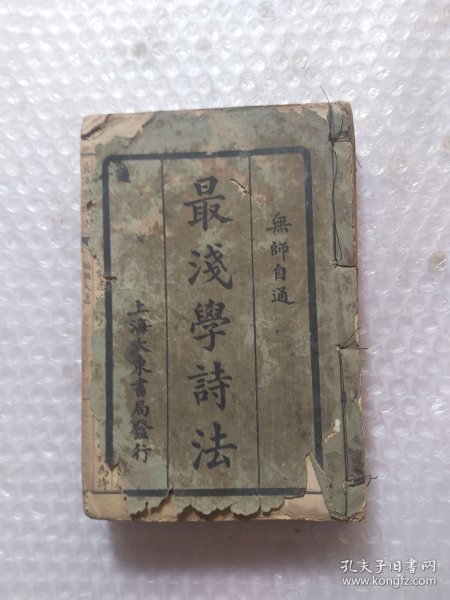 無師自通
最淺學詩法
上海大東書局發行
孔夫子旧书网
www.kongfz.com